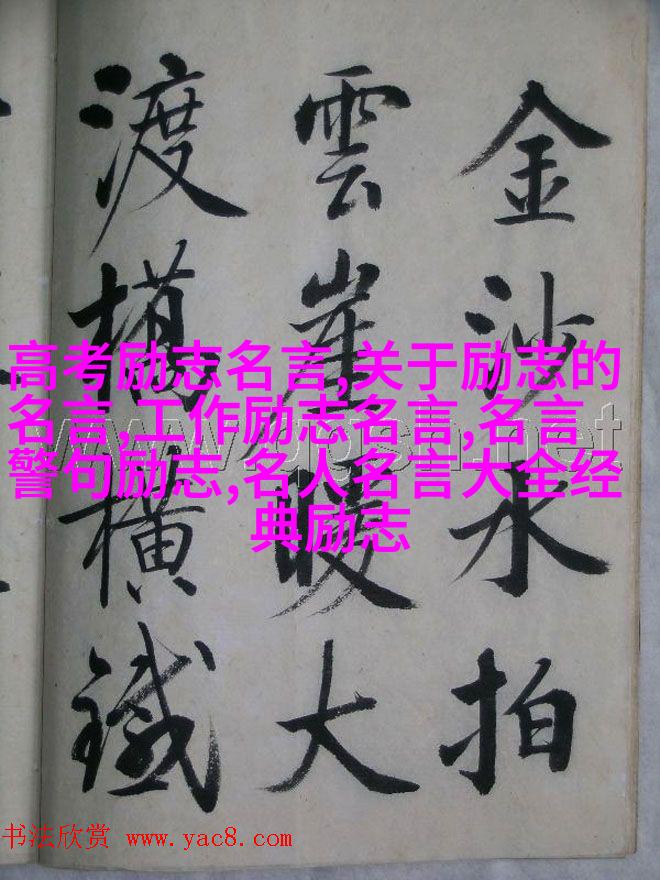 金沙水拍
雲崖暖大
渡橋橫鐵
高考励志名言,关于励志的
名言,工作励志名言,名言
警句励志,名人名言大全经
典励志
书法欣赏 www.yac8.com